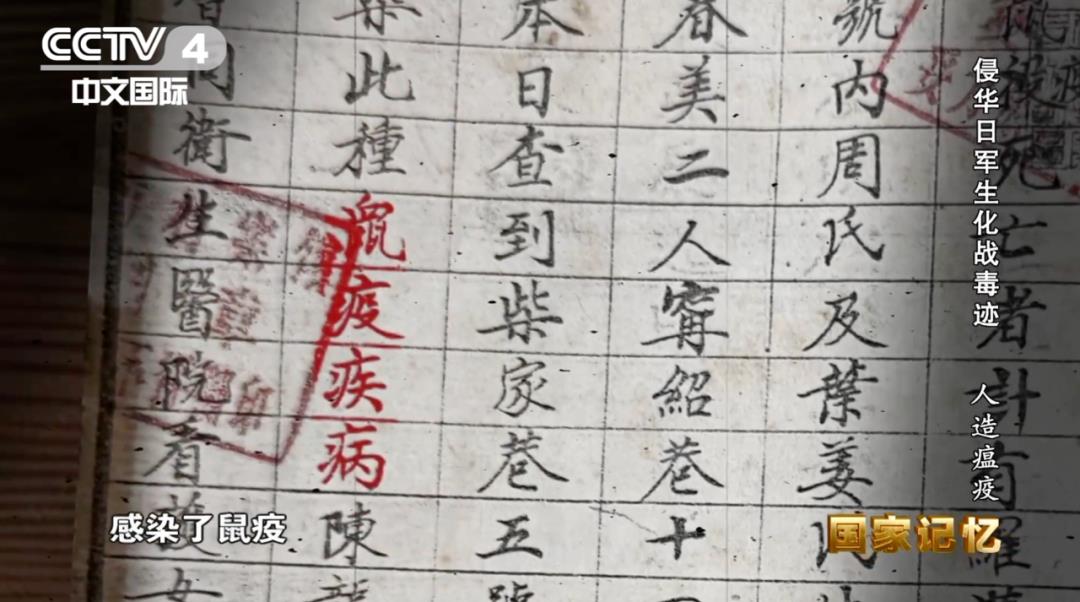 CCTV 4
中文国际
侵华日军生化战毒迹 人造瘟疫
死亡者計有羅
號內周氏及葉姜
春美二人甯紹巷十
本日查到柴家巷五號
此種鼠疫疾病陳
同衛生醫院看護女
感染了鼠疫
国家记忆